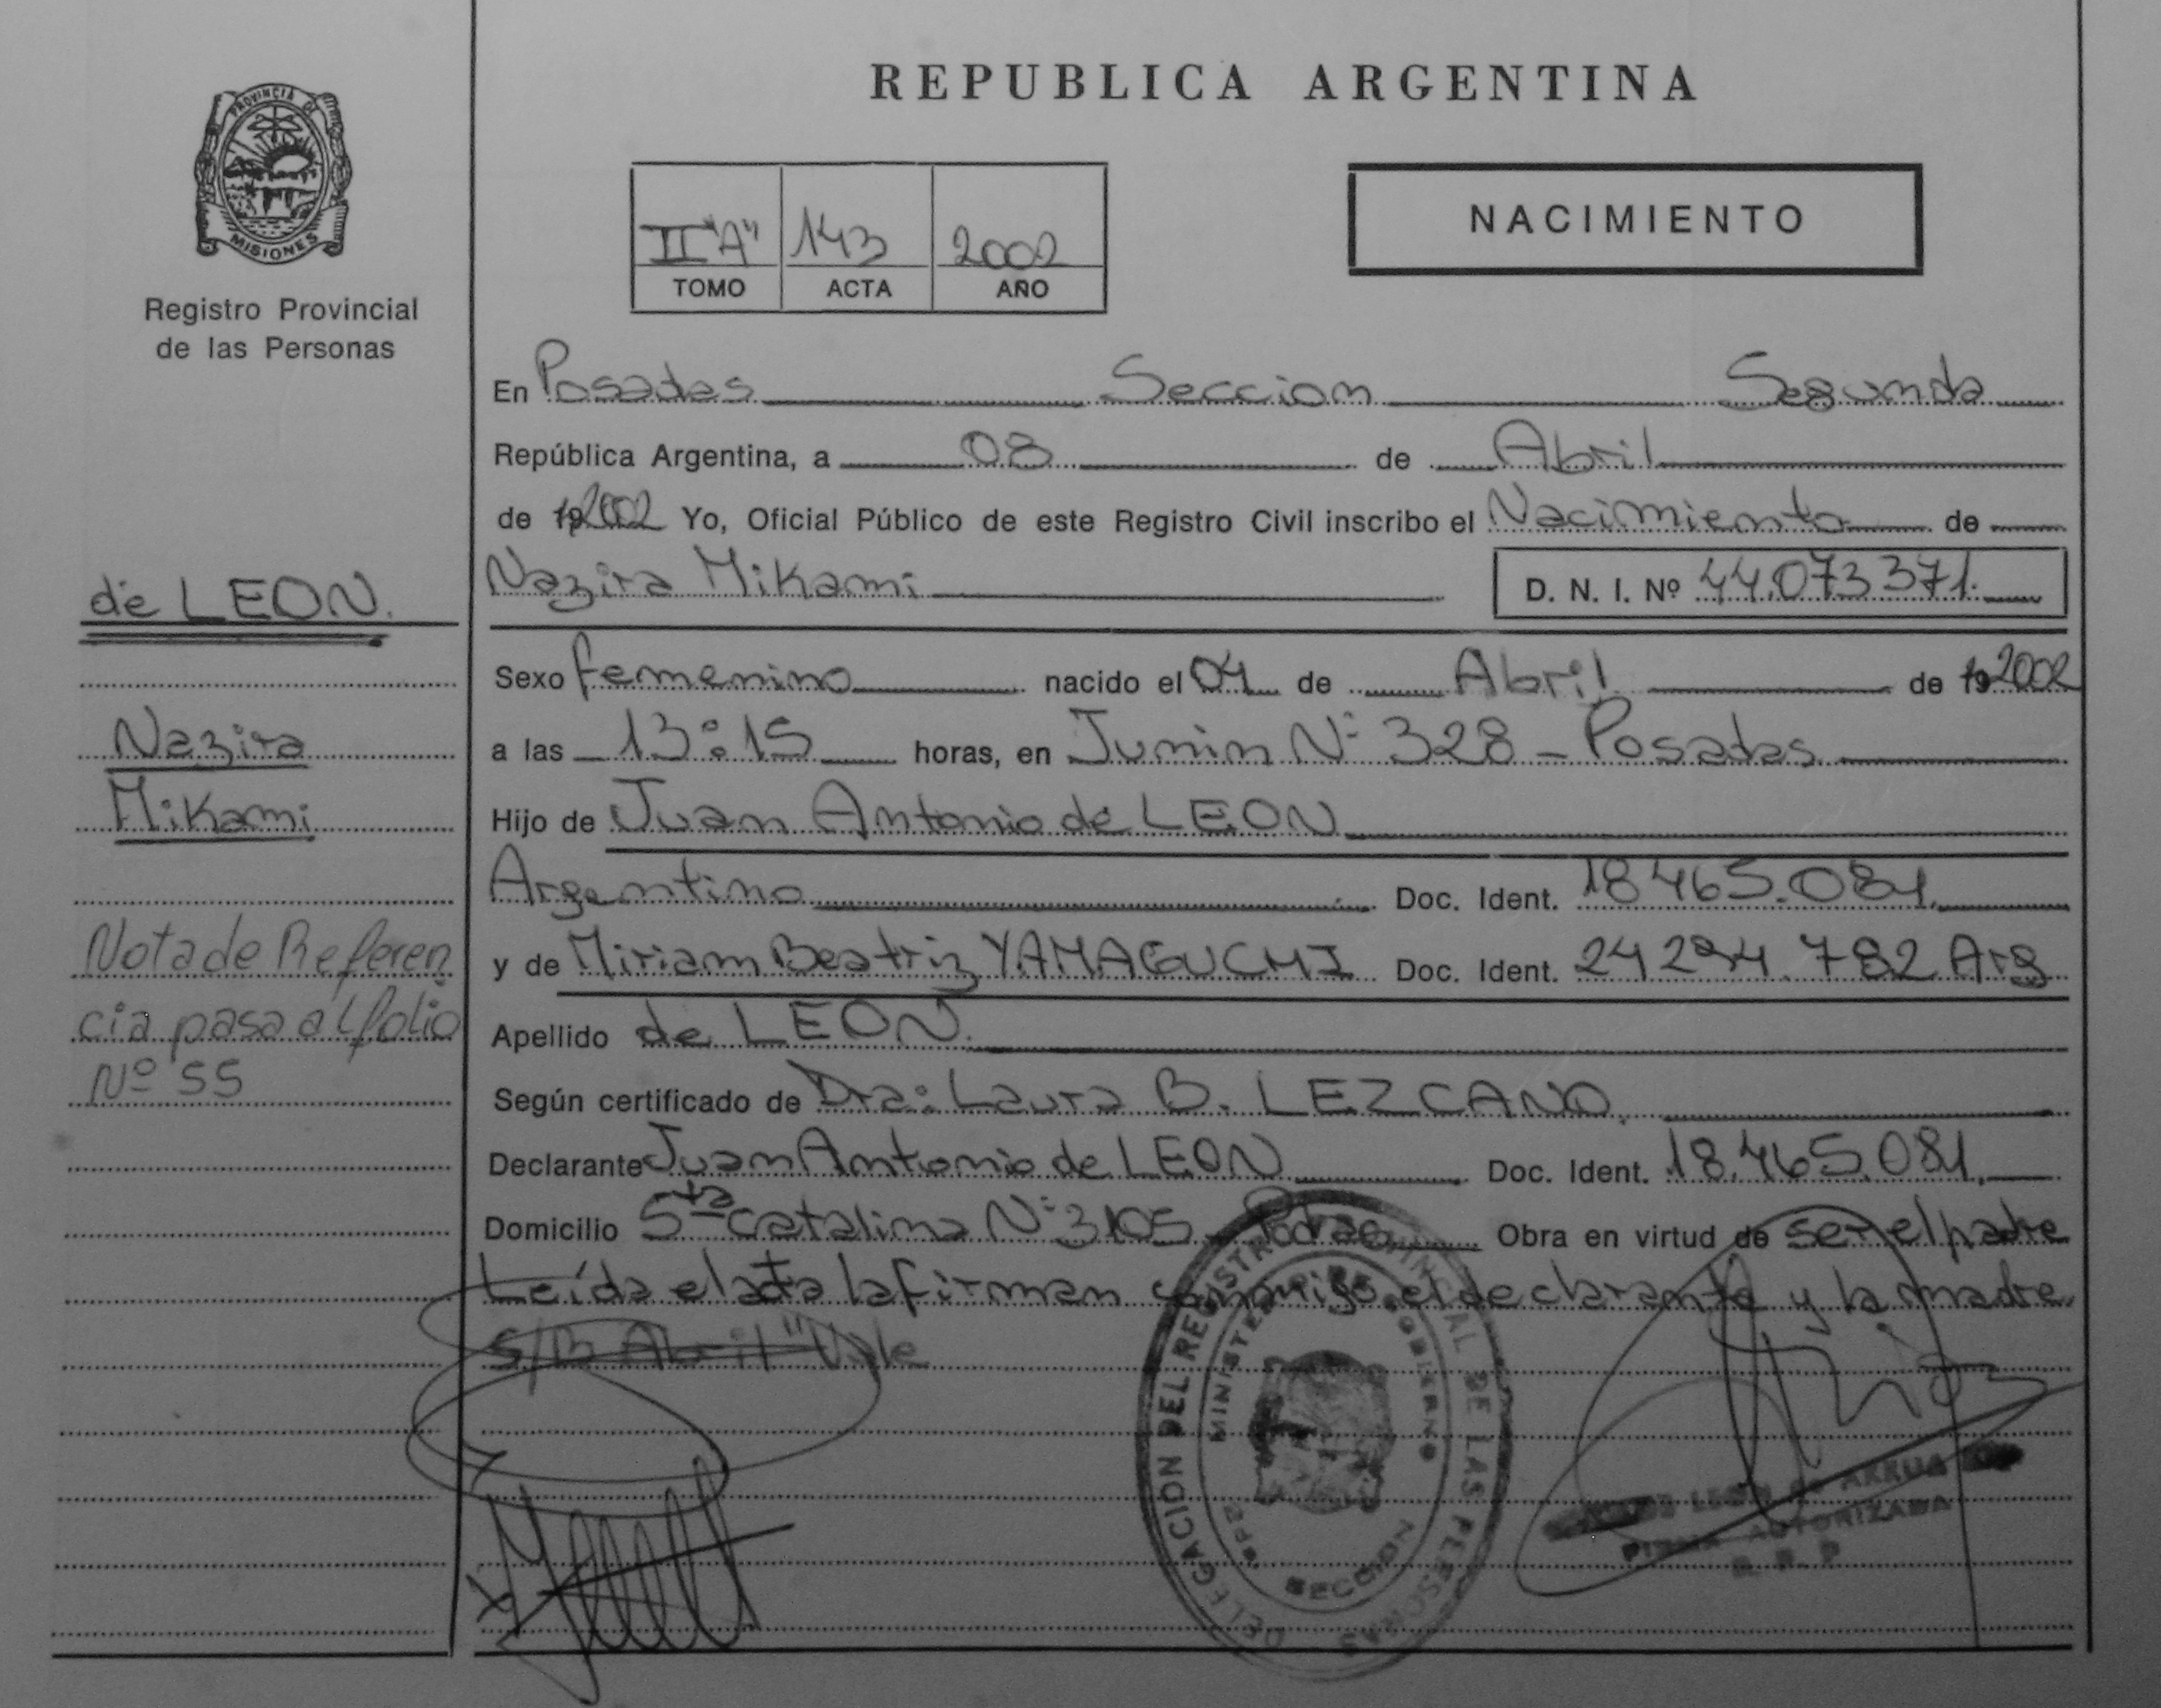 REPUBLICA ARGENTINA
PROVINCIA DE
MISIONES
Registro Provincial
de las Personas
NACIMIENTO
II "A" 143 2002
TOMO ACTA AÑO
En Posadas Seccion Segunda
República Argentina, a 08 de Abril
de 192002 Yo, Oficial Público de este Registro Civil inscribo el Nacimiento de
Nazira Mikami D. N. I. Nº 44.073371.
Sexo femenino nacido el 04 de Abril de 192002
a las 13:15 horas, en Junin Nº 328 - Posadas
Hijo de Juan Antonio de LEON
Argentino Doc. Ident. 18465.081.
y de Miriam Beatriz YAMAGUCHI Doc. Ident. 24294.782 Arg
Apellido de LEON.
Según certificado de Dra: Laura B. LEZCANO.
Declarante Juan Antonio de LEON Doc. Ident. 18.465.081.
Domicilio Sta Catalina Nº 3105 Obra en virtud de ser el padre
Leída el acta la firman conmigo el declarante y la madre
Abril" Vale
de LEON.
Nazira
Mikami
Nota de Referen
cia pasa al folio
Nº 55
DELEGACION DEL REGISTRO PROVINCIAL DE LAS PERSONAS
MINISTERIO DE GOBIERNO
LEON DE ARRUA
FIRMA AUTORIZADA
R. P. P.